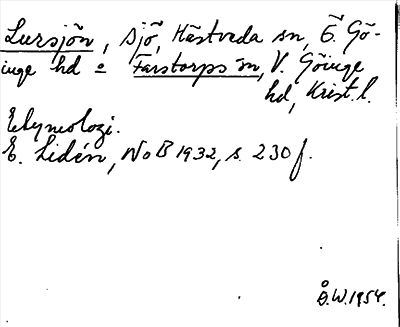 Lursjön, sjö, Hästveda sn, Ö. Gö-
inge hd o Farstorps sn, V. Göinge
hd, Krist. l.
Etymologi.
E. Lidén, NoB 1932, s. 230 f.
Å.W. 1954.